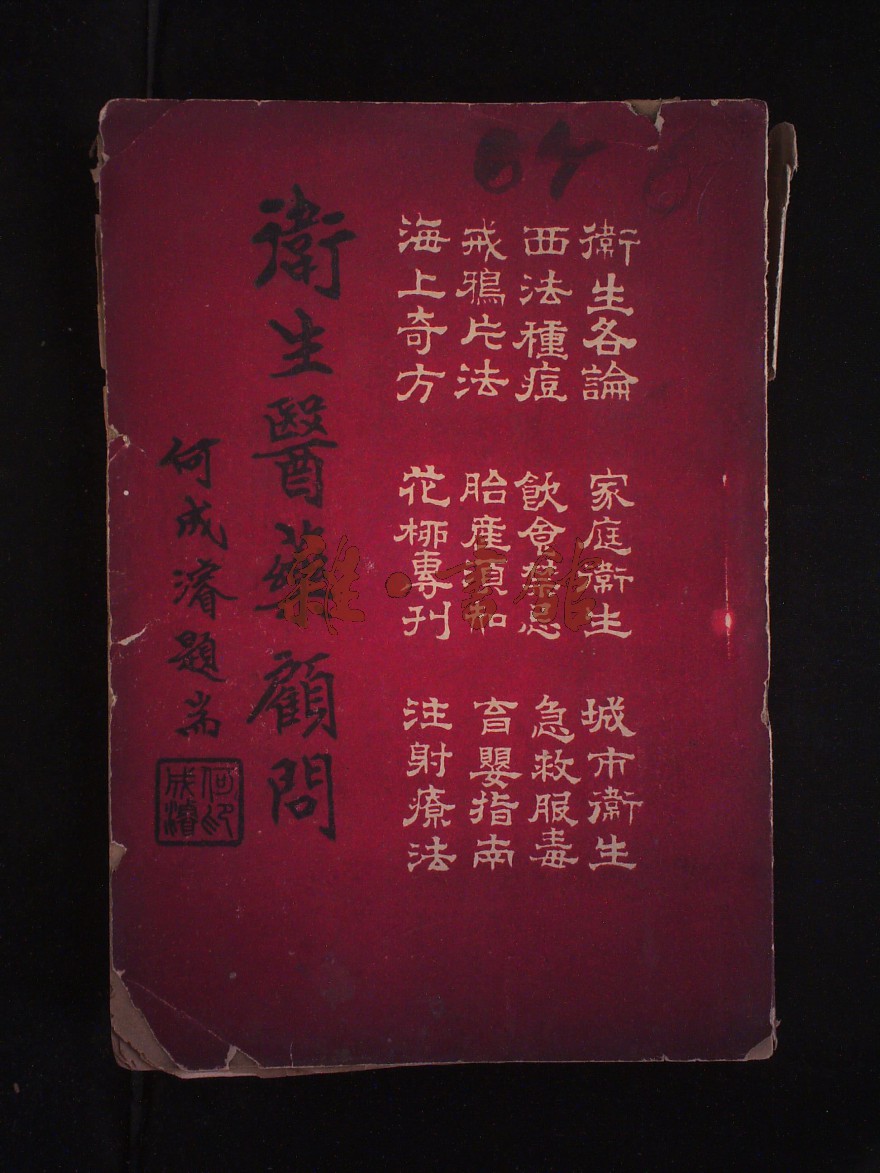 衛生各論 家庭衛生 城市衛生
西法種痘 飲食禁忌 急救服毒
戒鴉片法 胎產須知 育嬰指南
海上奇方 花柳專刊 注射療法
衛生醫藥顧問
何成濬題耑
何成濬印
雜·書館
64